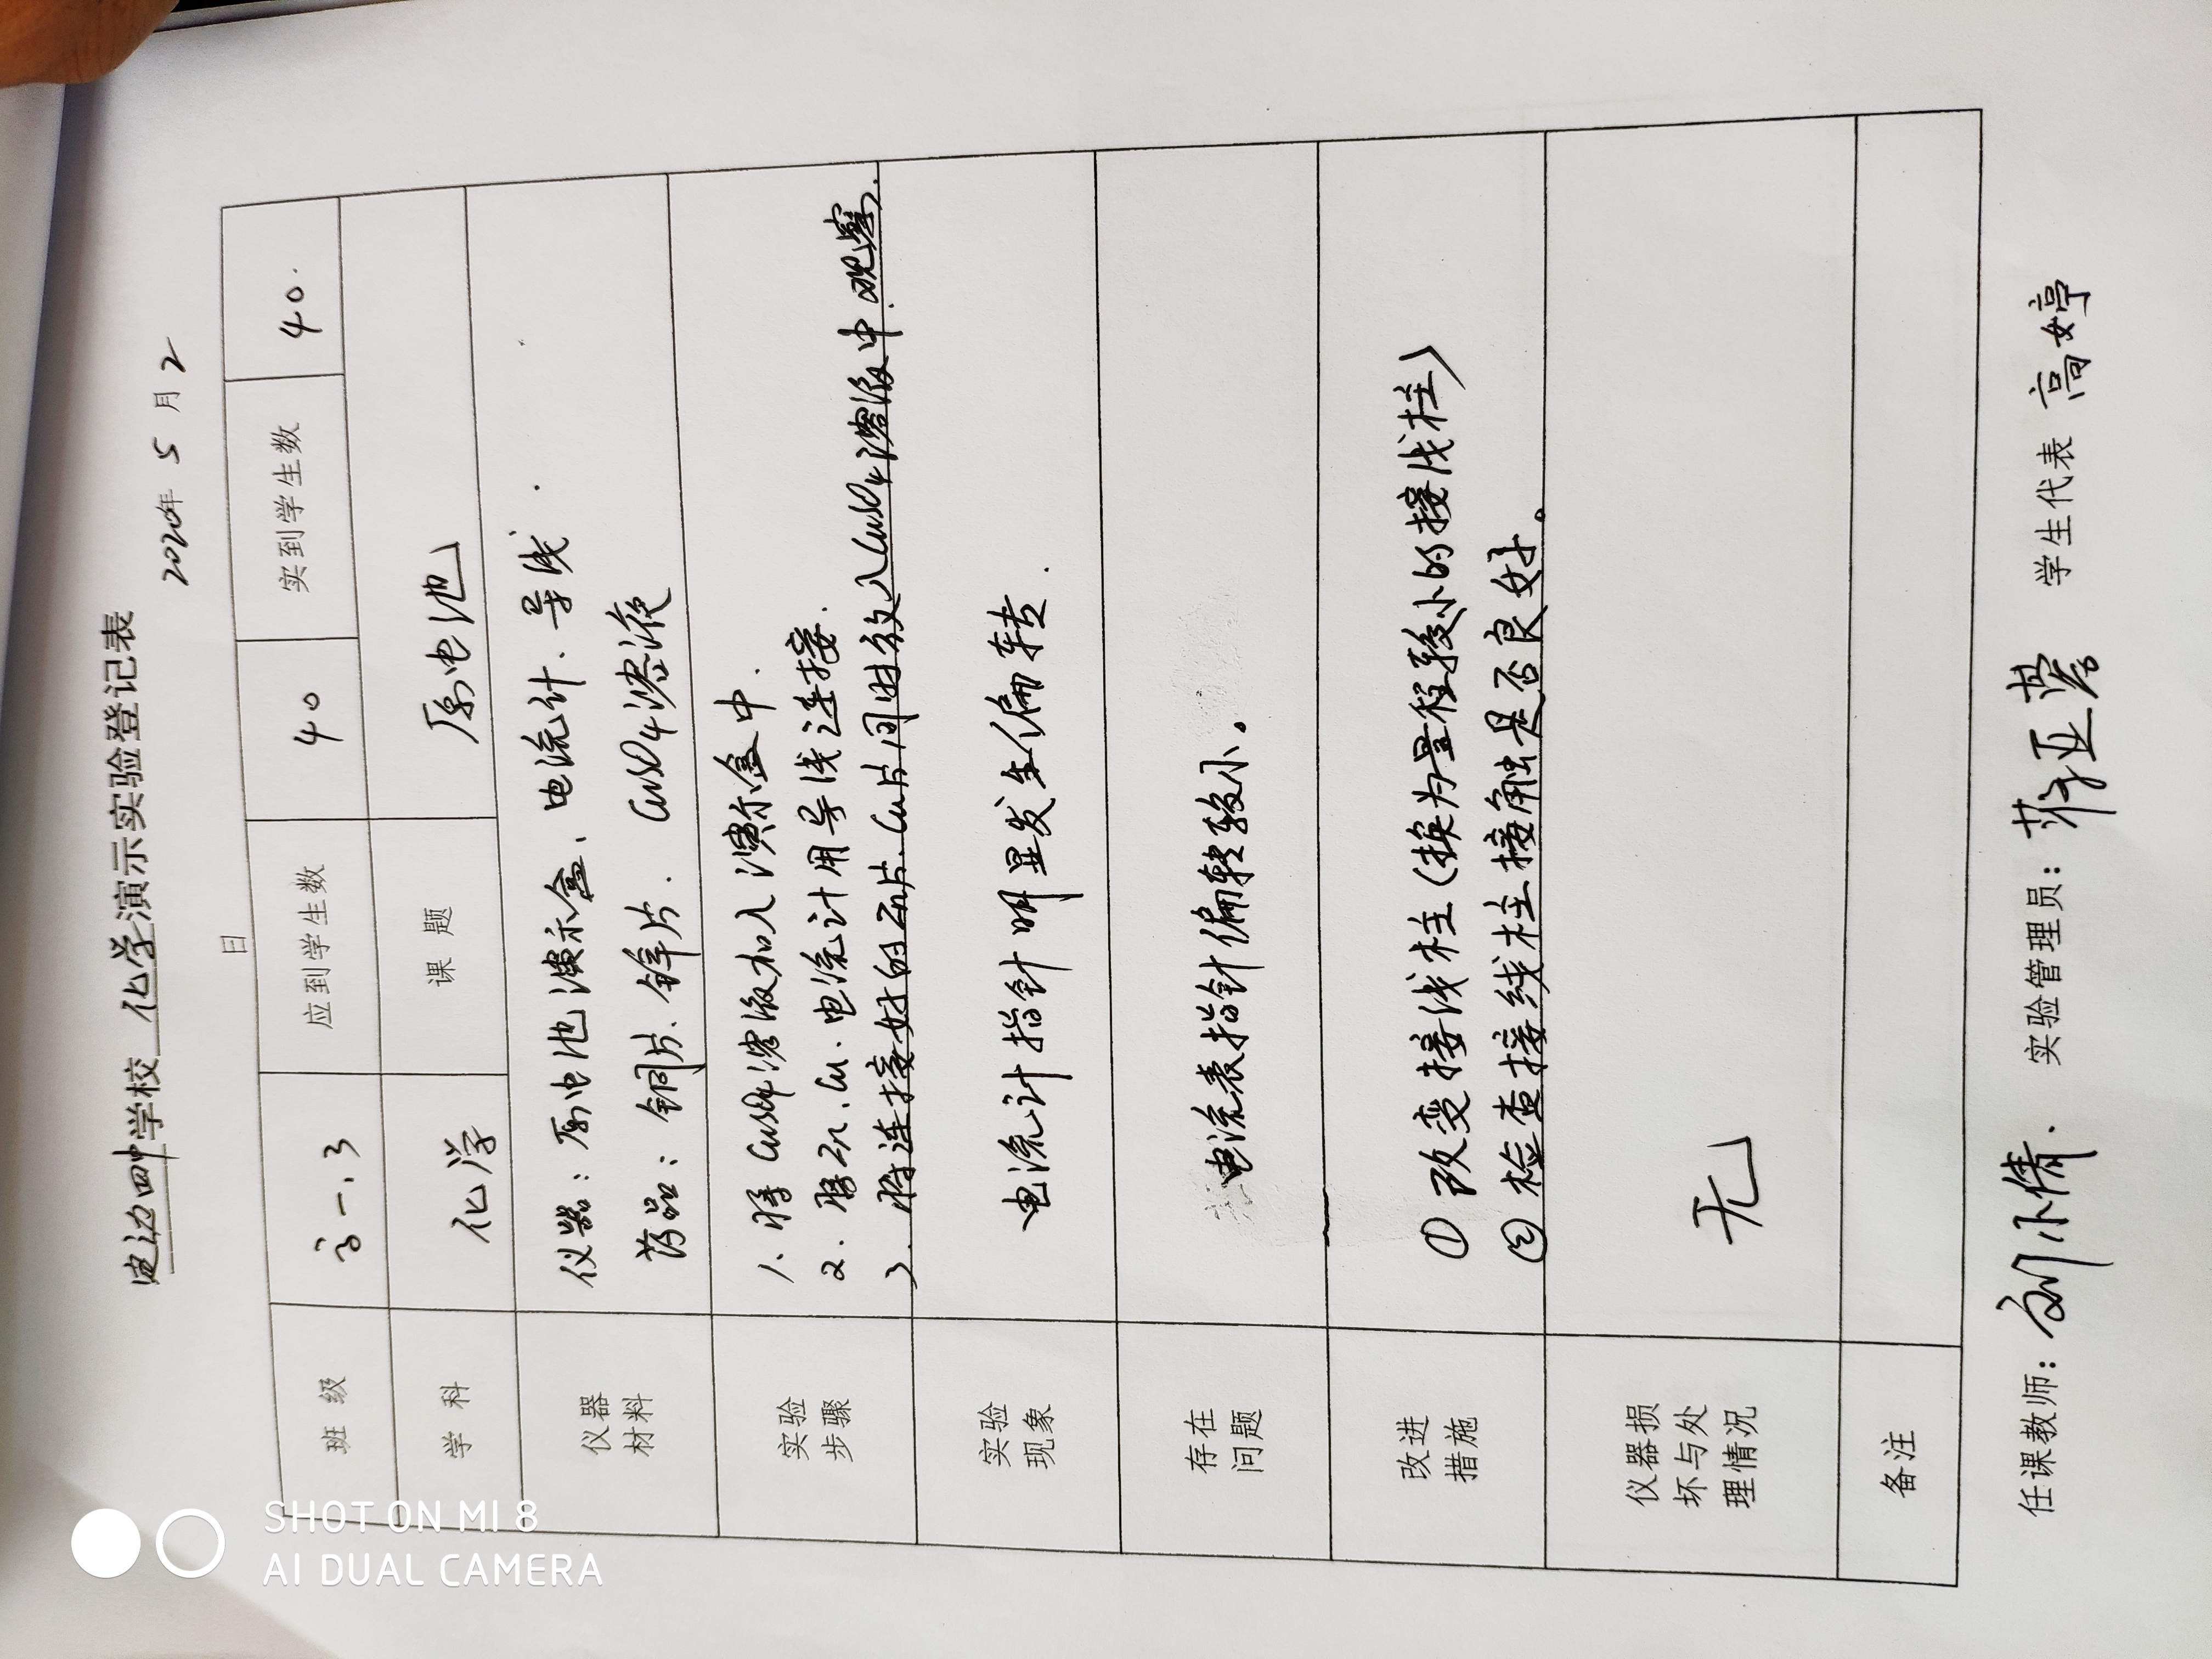 定边四中学校 化学演示实验登记表
2020年 5 月 2
日
班 级 高一.3 应到学生数 40 实到学生数 40.
学 科 化学 课 题 原电池
仪器
材料
仪器：原电池演示盒、电流计、导线.
药品：铜片、锌片. CuSO4溶液
实验
步骤
1. 将CuSO4溶液加入演示盒中.
2. 将Zn、Cu、电流计用导线连接.
3. 将连接好的Zn片、Cu片同时放入CuSO4溶液中.观察.
实验
现象
电流计指针明显发生偏转.
存在
问题
电流表指针偏转较小。
改进
措施
① 改变接线柱(换为量程较小的接线柱)
② 检查接线柱接触是否良好。
仪器损
坏与处
理情况
无
备注
任课教师：刘小倩. 实验管理员： 学生代表 高婷
SHOT ON MI 8
AI DUAL CAMERA